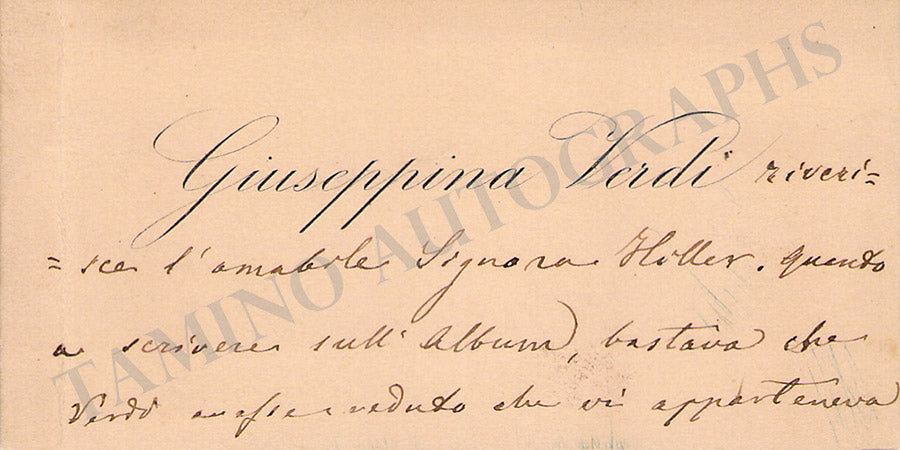 Giuseppina Verdi riveri=
=sce l'amabile Signora Hiller. Quanto
a scrivere sull'Album, bastava che
Verdi avesse veduto che vi apparteneva
TAMINO AUTOGRAPHS